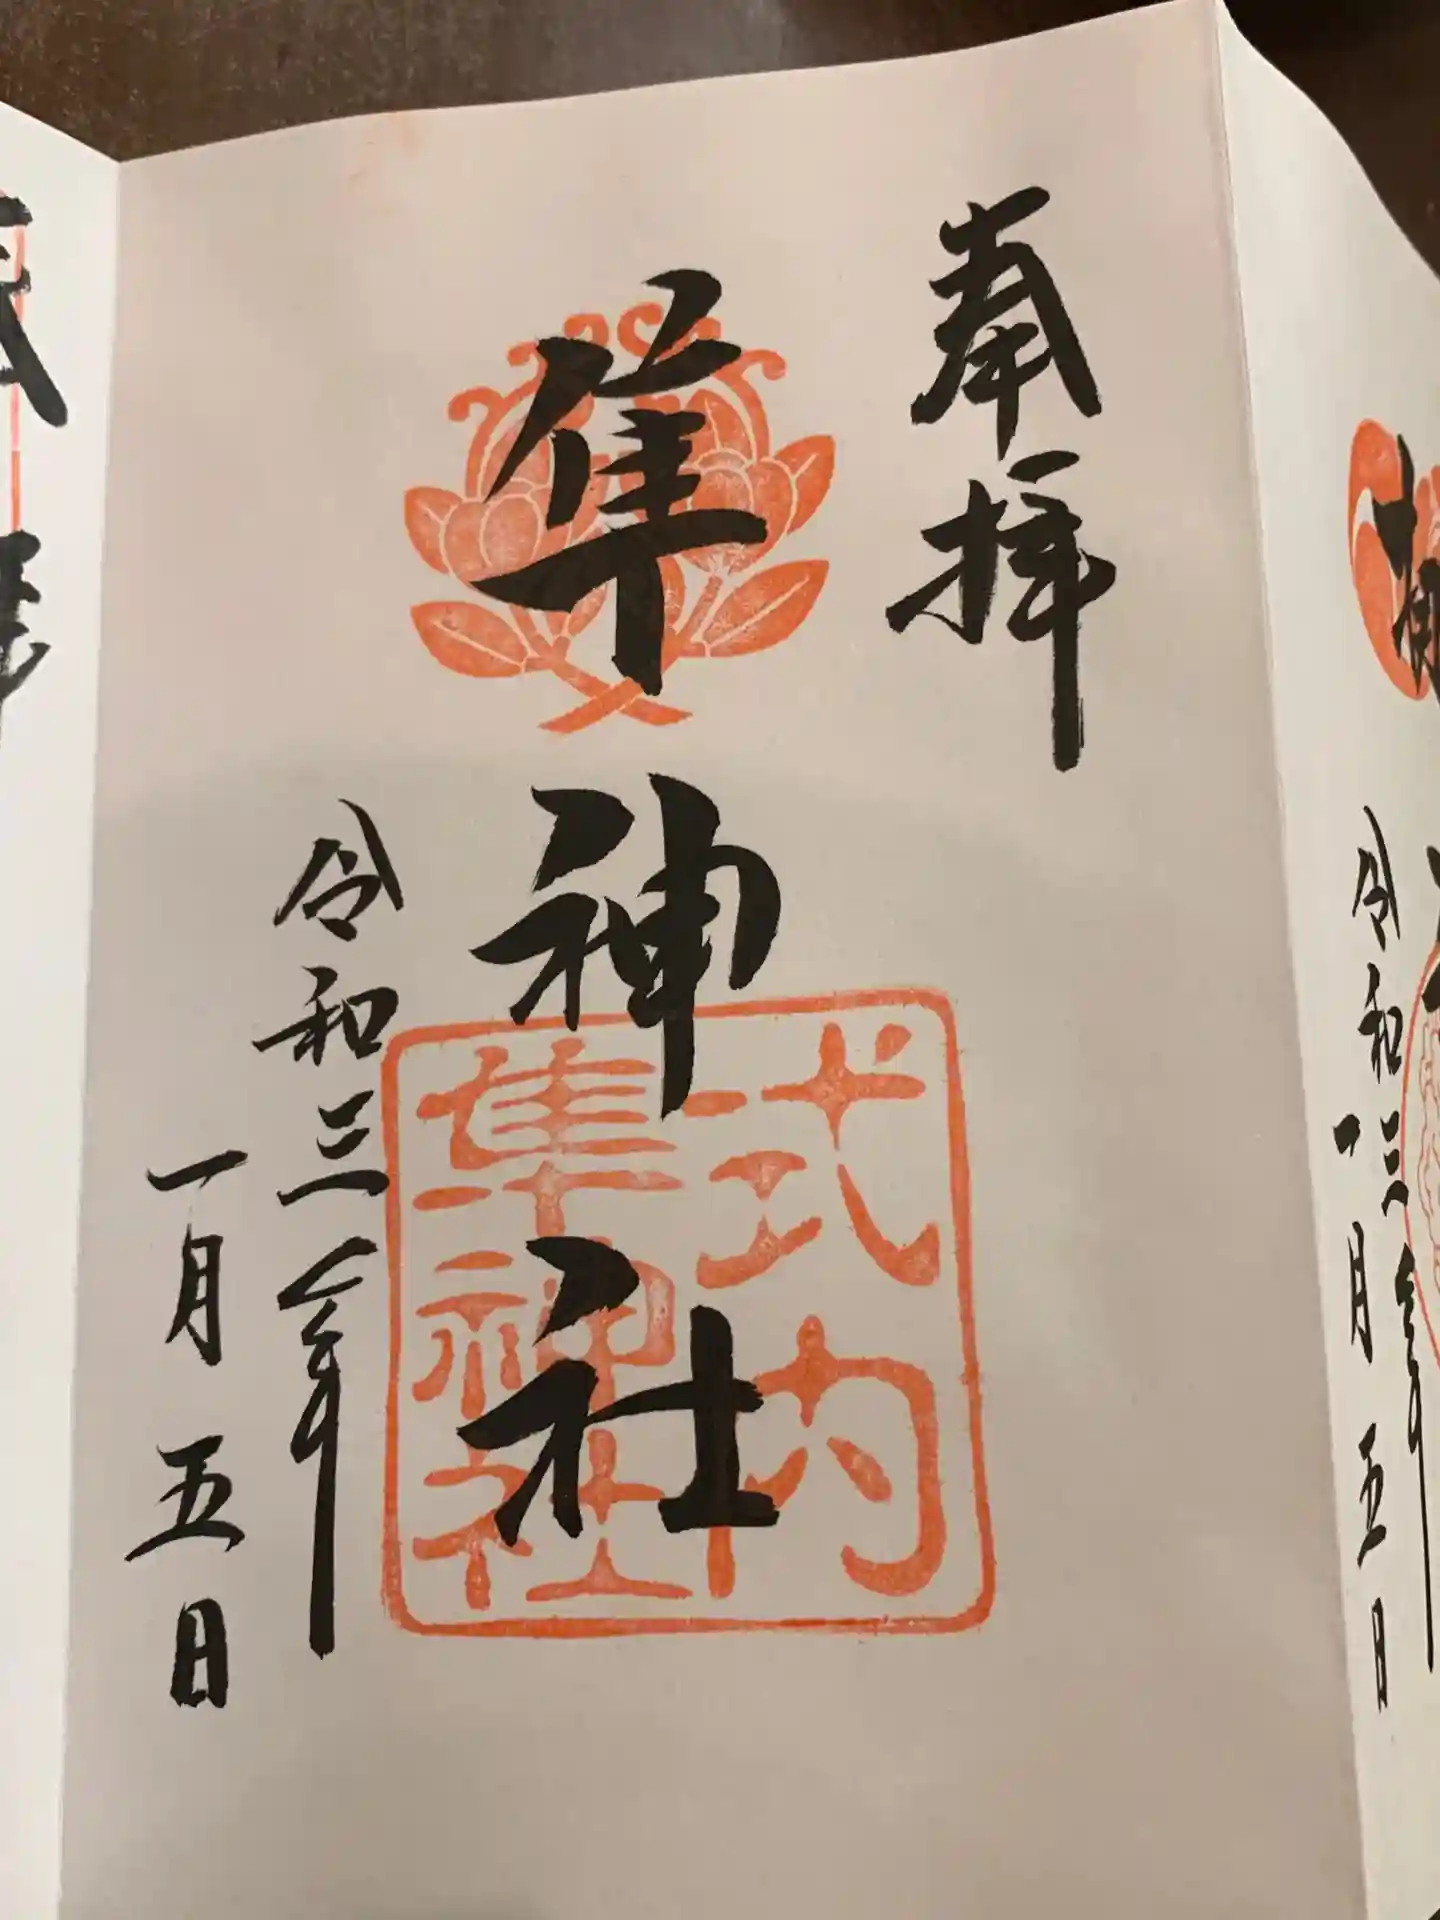 奉拝
隼神社
式内
隼神社
令和三年
一月五日
令和三年
一月五日